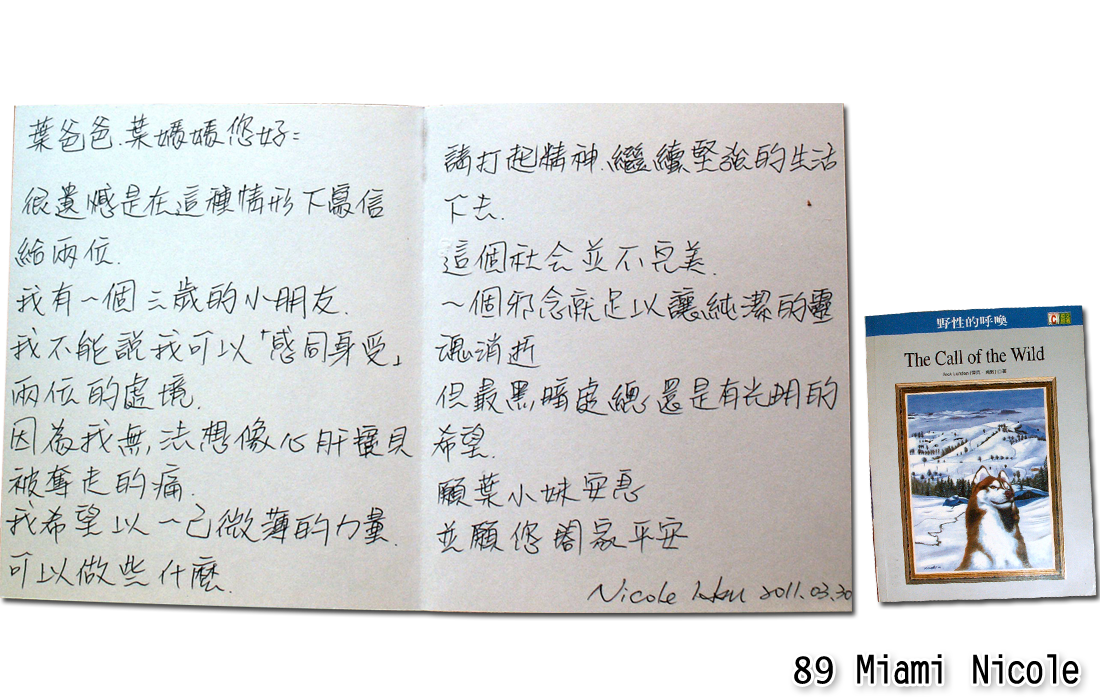 葉爸爸.葉媽媽您好:
很遺憾是在這種情形下寫信
給兩位.
我有一個三歲的小朋友.
我不能說我可以「感同身受」
兩位的處境.
因為我無法想像心肝寶貝
被奪走的痛.
我希望以一己微薄的力量.
可以做些什麼.
請打起精神.繼續堅強的生活
下去.
這個社会並不完美.
一個邪念就足以讓純潔的靈
魂消逝
但最黑暗處總還是有光明的
希望.
願葉小妹安息
並願您闔家平安
Nicole 2011.03.30
野性的呼喚
The Call of the Wild
89 Miami Nicole